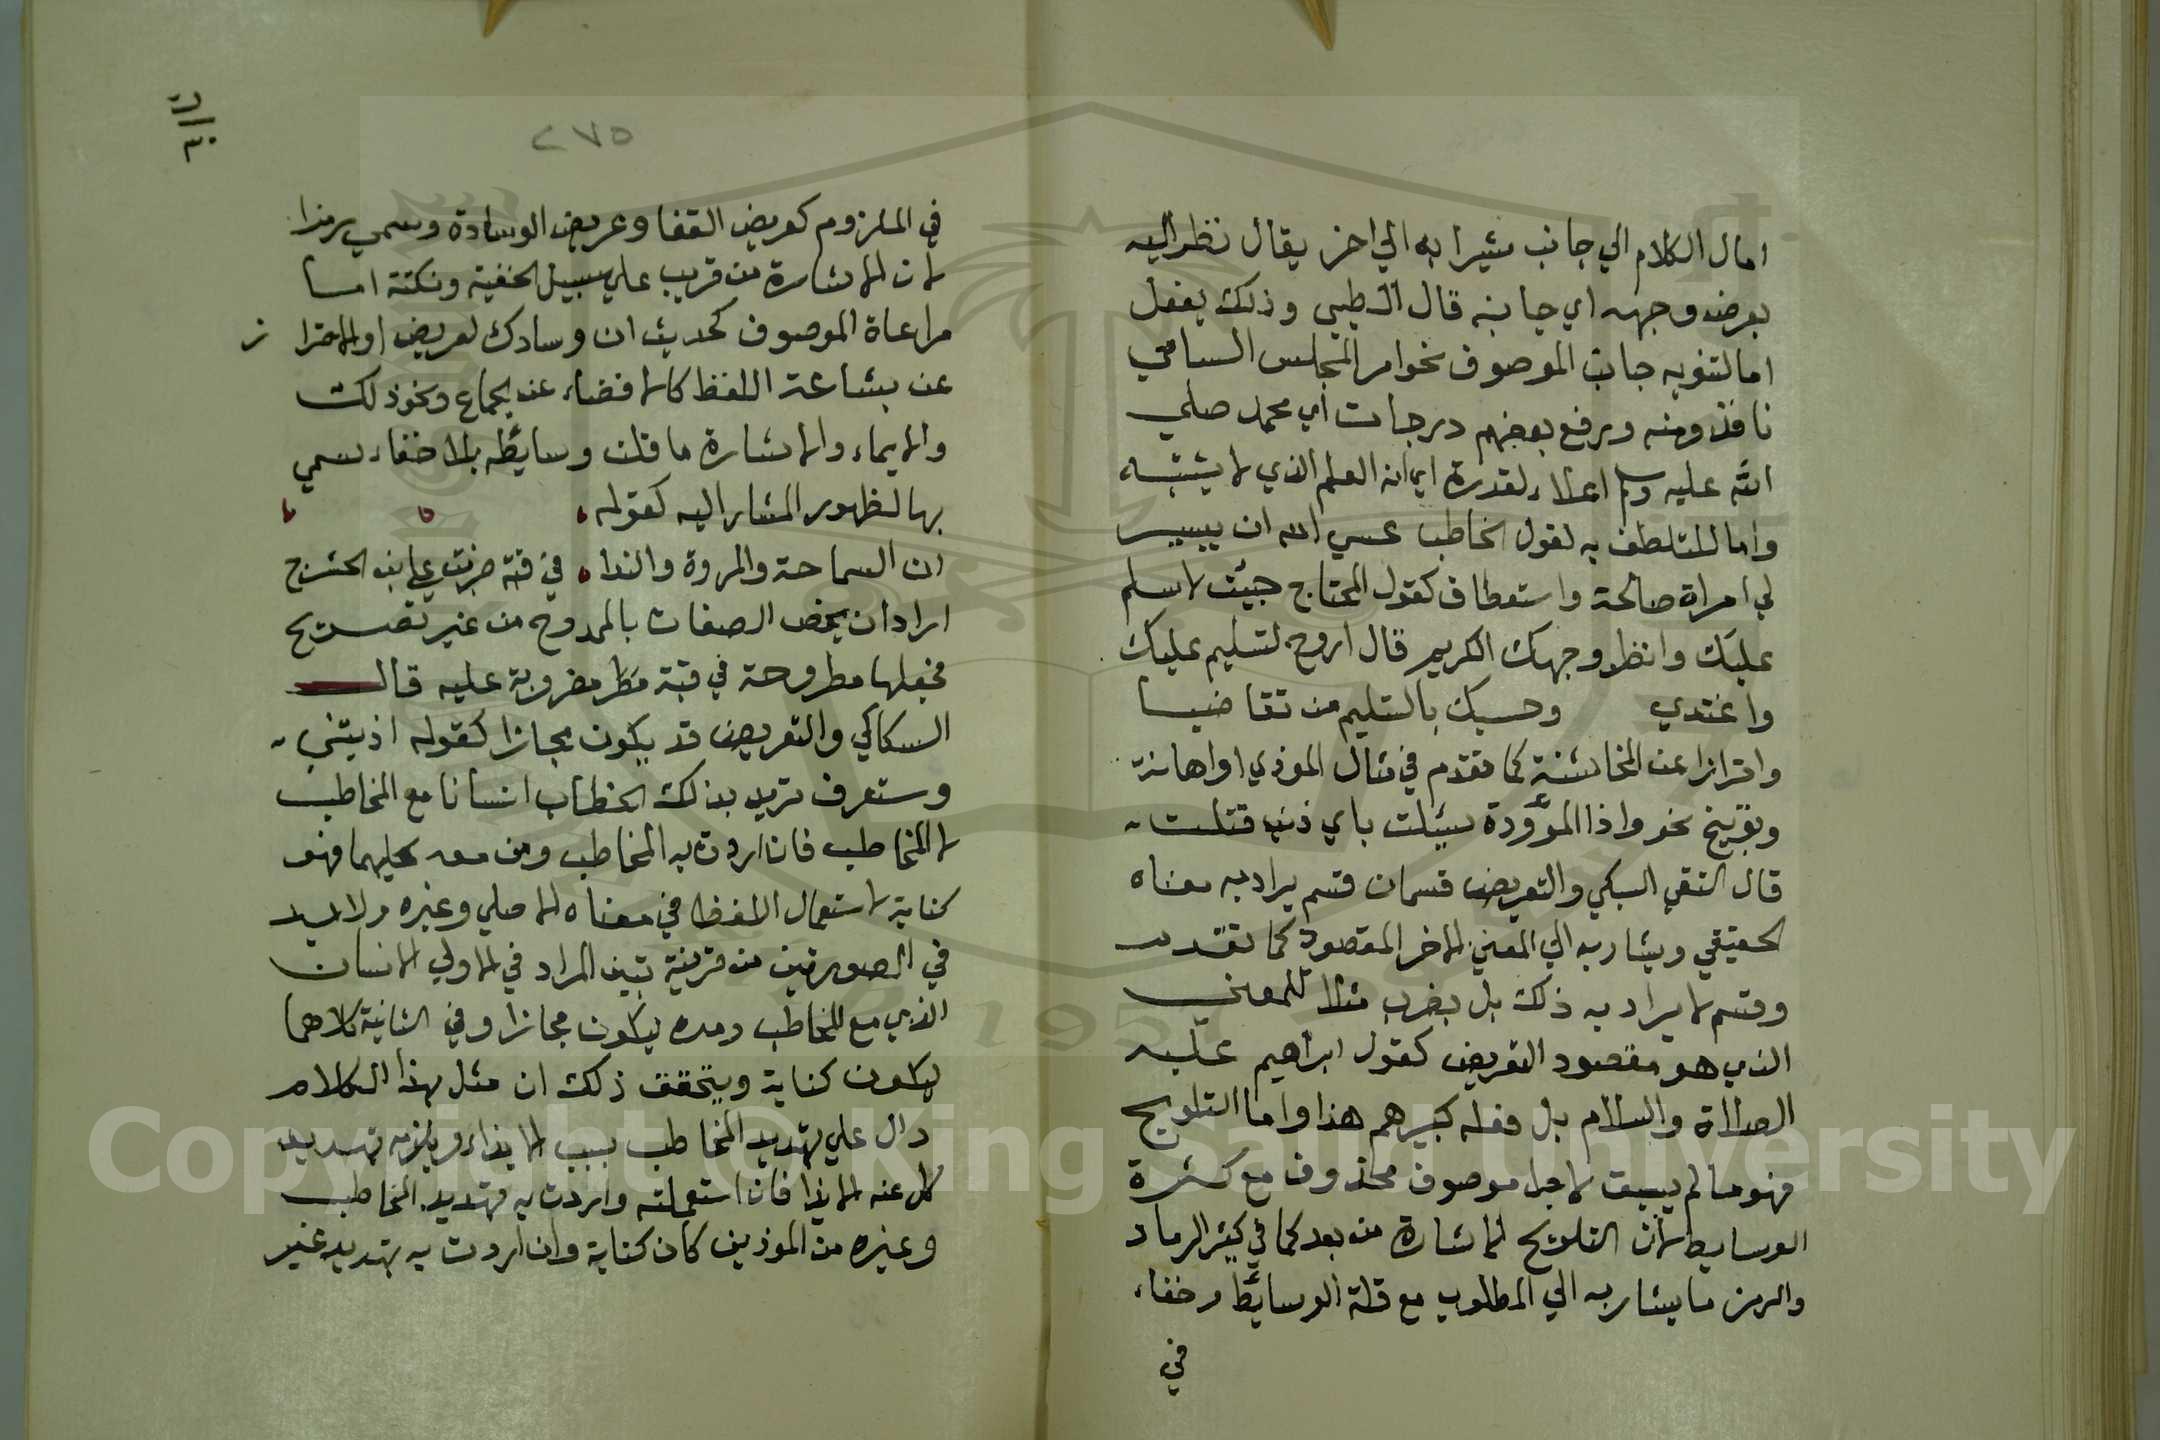 امال الكلام الي جانب مشيرا به الي اخر يقال نظر اليه
بعرض وجهه اي جانبه قال الطيبي وذلك يفعل
اما لتنويه جانب الموصوف نحو امر المجلس السامي
نافذ ومنه ورفع بعضهم درجات أي محمد صلي
الله عليه وسلم اعلاء لقدره اي انه العلم الذي لا يشتبه
واما للتلطف به لقول الخاطب عسي الله ان ييسر
لي امراة صالحة واستعطاف كقول المحتاج جيئت لاسلم
عليك وانظر وجهك الكريم قال اروح لتسليم عليك
واغتدي وحسبك بالتسليم من تقاضيا
واحترازا عن المخاشنة كما تقدم في مثال الموذي او اهانة
وتوبيخ نحو واذا الموؤدة سيئلت باي ذنب قتلت
قال التقي السبكي والتعريض قسمان قسم يراد به معناه
الحقيقي ويشار به الي المعني الاخر المقصود كما تقدم
وقسم لا يراد به ذلك بل يضرب مثلا للمعني
الذي هو مقصود التعريض كقول ابراهيم عليه
الصلاة والسلام بل فعله كبيرهم هذا واما التلويح
فهو ما لم يسق لاجل موصوف محذوف مع كثرة
الوسايط لان التلويح الاشارة من بعد كما في كثير الرماد
والرمز ما يشار به الي المطلوب مع قلة الوسائط وخفاء
في
٢٧٥
في الملزوم كعريض القفا وعريض الوسادة وسمي رمزا
لان الاشارة من قريب علي سبيل الخفية ونكتة اما
مراعاة الموصوف كحديث ان وسادك لعريض او الاحترا ز
عن بشاعة اللفظ كالافضاء عن الجماع ونحو ذلك
والايماء والاشارة ما قلت وسايطه بلا خفاء سمي
بها لظهور المشار اليه كقوله
ان السماحة والمروة والندا في قبة ضربت علي ابن الحشرج
اراد ان يخص الصفات بالممدوح من غير تصريح
فجعلها مطروحة في قبة مضروبة عليه قال
السكاكي والتعريض قد يكون مجازا كقوله اذيتني
وستعرف تريد بذلك الخطاب انسانا مع المخاطب
لا المخاطب فان اردت به المخاطب ومن معه كليهما فهو
كناية لاستعمال اللفظ في معناه الاصلي وغيره ولا بد
في الصورتين من قرينة تبين المراد في الاولي الانسان
الذي مع المخاطب وحده ليكون مجازا وفي الثانية كلاهما
ليكون كناية ويتحقق ذلك ان مثل هذا الكلام
دال علي تهديد المخاطب بسبب الايذاء ويلزمه تهديد
كل عنه الايذا فان استعملته واردت به تهديد المخاطب
وغيره من الموذين كان كناية وان اردت به تهديد غير
Copyright © King Saud University
1957